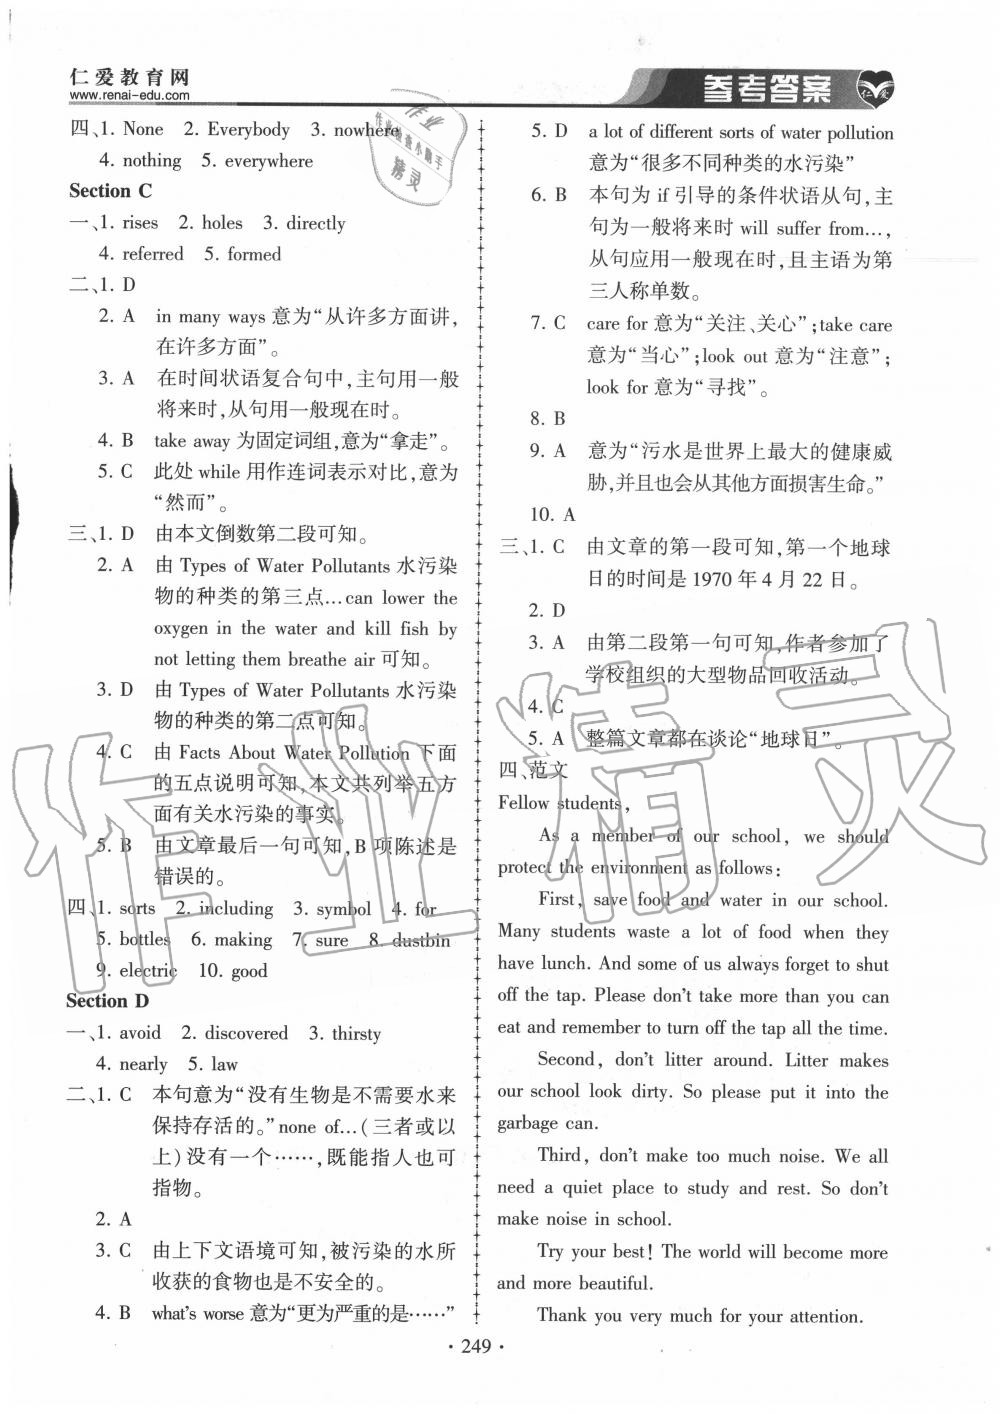 仁爱教育网
www.renai-edu.com
参考答案
仁爱
四、1. None 2. Everybody 3. nowhere
4. nothing 5. everywhere
Section C
一、1. rises 2. holes 3. directly
4. referred 5. formed
二、1. D
2. A in many ways 意为“从许多方面讲，
在许多方面”。
3. A 在时间状语复合句中，主句用一般
将来时，从句用一般现在时。
4. B take away 为固定词组，意为“拿走”。
5. C 此处 while 用作连词表示对比，意为
“然而”。
三、1. D 由本文倒数第二段可知。
2. A 由 Types of Water Pollutants 水污染
物的种类的第三点…can lower the
oxygen in the water and kill fish by
not letting them breathe air 可知。
3. D 由 Types of Water Pollutants 水污染
物的种类的第二点可知。
4. C 由 Facts About Water Pollution 下面
的五点说明可知，本文共列举五方
面有关水污染的事实。
5. B 由文章最后一句可知，B 项陈述是
错误的。
四、1. sorts 2. including 3. symbol 4. for
5. bottles 6. making 7. sure 8. dustbin
9. electric 10. good
Section D
一、1. avoid 2. discovered 3. thirsty
4. nearly 5. law
二、1. C 本句意为“没有生物是不需要水来
保持存活的。”none of…（三者或以
上）没有一个……，既能指人也可
指物。
2. A
3. C 由上下文语境可知，被污染的水所
收获的食物也是不安全的。
4. B what's worse 意为“更为严重的是……”
5. D a lot of different sorts of water pollution
意为“很多不同种类的水污染”
6. B 本句为 if 引导的条件状语从句，主
句为一般将来时 will suffer from…，
从句应用一般现在时，且主语为第
三人称单数。
7. C care for 意为“关注、关心”；take care
意为“当心”；look out 意为“注意”；
look for 意为“寻找”。
8. B
9. A 意为“污水是世界上最大的健康威
胁，并且也会从其他方面损害生命。”
10. A
三、1. C 由文章的第一段可知，第一个地球
日的时间是 1970 年 4 月 22 日。
2. D
3. A 由第二段第一句可知，作者参加了
学校组织的大型物品回收活动。
4. C
5. A 整篇文章都在谈论“地球日”。
四、范文
Fellow students,
As a member of our school, we should
protect the environment as follows:
First, save food and water in our school.
Many students waste a lot of food when they
have lunch. And some of us always forget to shut
off the tap. Please don't take more than you can
eat and remember to turn off the tap all the time.
Second, don't litter around. Litter makes
our school look dirty. So please put it into the
garbage can.
Third, don't make too much noise. We all
need a quiet place to study and rest. So don't
make noise in school.
Try your best! The world will become more
and more beautiful.
Thank you very much for your attention.
· 249 ·
作业
作业检查小助手
精灵
作业精灵